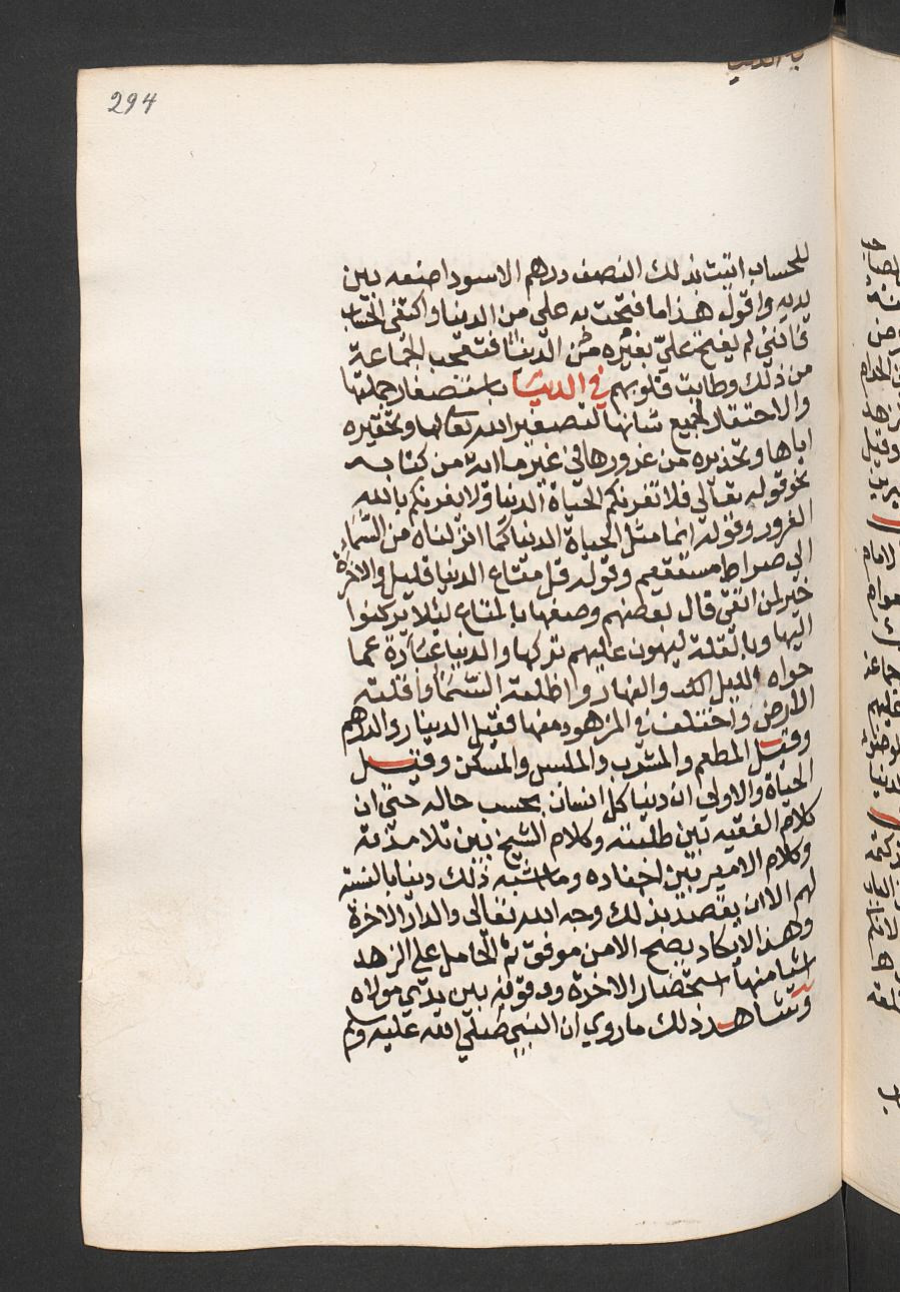 294
للحساب اتيت بذلك النصف درهم الاسود اضعه بين
يديه واقول هذا ما فتحت به علي من الدنيا واكتفي الحساب
فانني لم يفتح عليّ بغيره من الدنيا فتعجب الجماعة
من ذلك وطابت قلوبهم في الدنيا باستصغار جملتها
والاحتقار لجميع شانها لتصغير الله تعالى لها وتحقيره
اياها وتحذيره من غرورها في غير ما اية من كتابه
نحو قوله تعالى فلا تغرنكم الحياة الدنيا ولا يغرنكم بالله
الغرور وقوله انما مثل الحياة الدنيا كما انزلناه من السماء
الى صراط مستقيم وقوله قل متاع الدنيا قليل والاخرة
خير لمن اتقى قال بعضهم وصفها بالمتاع ليلا يركنوا
اليها وبالقلة ليهون عليهم تركها والدنيا عبارة عما
حواه الليل والنهار واظلته السما واقلته
الارض واختلف في المزهود منها فقيل الدينار والدرهم
وقيل المطعم والمشرب والملبس والمسكن وقيل
الحياة والاولى ان دنيا كل انسان بحسب حاله حتى ان
كلام الفقيه بين طلبته وكلام الشيخ بين تلامذته
وكلام الامير بين اجناده وما اشبه ذلك دنيا بالنسبة
لهم الا ان يقصد بذلك وجه الله تعالى والدار الاخرة
وهذا لا يكاد يصح الا من موفق ثم الحامل على الزهد
اشيا منها استحضار الاخرة ووقوفه بين يدي مولاه
ويشاهد ذلك ما روي ان النبي صلى الله عليه وسلم